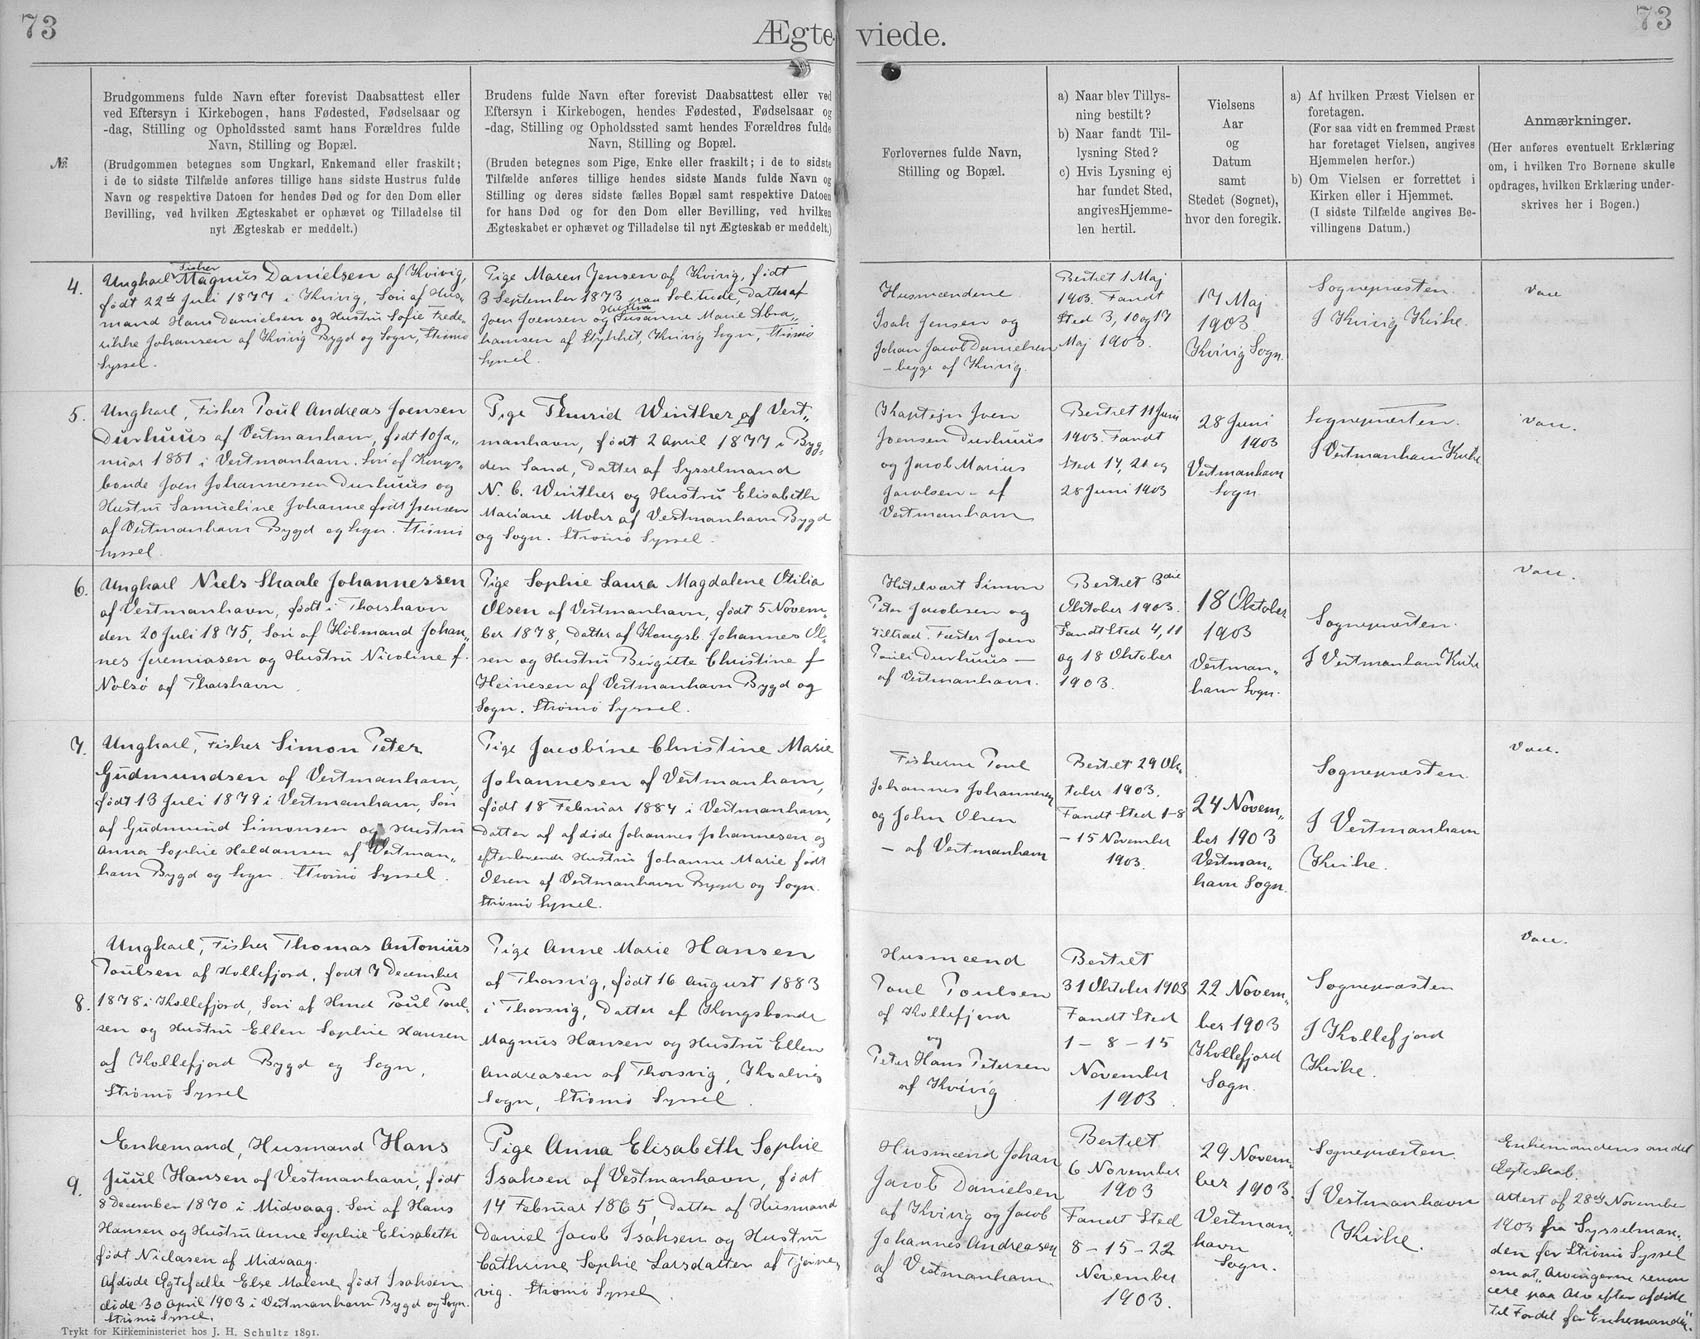 73
Ægte
viede.
73
№.
Brudgommens fulde Navn efter forevist Daabsattest eller
ved Eftersyn i Kirkebogen, hans Fødested, Fødselsaar og
-dag, Stilling og Opholdssted samt hans Forældres fulde
Navn, Stilling og Bopæl.
(Brudgommen betegnes som Ungkarl, Enkemand eller fraskilt;
i de to sidste Tilfælde anføres tillige hans sidste Hustrus fulde
Navn og respektive Datoen for hendes Død og for den Dom eller
Bevilling, ved hvilken Ægteskabet er ophævet og Tilladelse til
nyt Ægteskab er meddelt.)
Brudens fulde Navn efter forevist Daabsattest eller ved
Eftersyn i Kirkebogen, hendes Fødested, Fødselsaar og
-dag, Stilling og Opholdssted samt hendes Forældres fulde
Navn, Stilling og Bopæl.
(Bruden betegnes som Pige, Enke eller fraskilt; i de to sidste
Tilfælde anføres tillige hendes sidste Mands fulde Navn og
Stilling og deres sidste fælles Bopæl samt respektive Datoen
for hans Død og for den Dom eller Bevilling, ved hvilken
Ægteskabet er ophævet og Tilladelse til nyt Ægteskab er meddelt.)
Forlovernes fulde Navn,
Stilling og Bopæl.
a) Naar blev Tillys-
ning bestilt?
b) Naar fandt Til-
lysning Sted?
c) Hvis Lysning ej
har fundet Sted,
angives Hjemme-
len hertil.
Vielsens
Aar
og
Datum
samt
Stedet (Sognet),
hvor den foregik.
a) Af hvilken Præst Vielsen er
foretagen.
(For saa vidt en fremmed Præst
har foretaget Vielsen, angives
Hjemmelen herfor.)
b) Om Vielsen er forrettet i
Kirken eller i Hjemmet.
(I sidste Tilfælde angives Be-
villingens Datum.)
Anmærkninger.
(Her anføres eventuelt Erklæring
om, i hvilken Tro Børnene skulle
opdrages, hvilken Erklæring under-
skrives her i Bogen.)
4.
Fisker
Ungkarl Magnus Danielsen af Kvivig,
født 22de Juli 1877 i Kvivig, Søn af Hus-
mand Hans Danielsen og Hustru Sofie Frede-
rikke Johansen af Kvivig Bygd og Sogn, Strømø
Syssel.
Pige Maren Jensen af Kvivig, født
3 September 1873 paa Solitude, Datter af
Joen Joensen og Hustru Susanne Marie Abra-
hamsen af Stykket, Kvivig Sogn, Strømø
Syssel.
Husmændene
Isak Jensen og
Johan Jacob Danielsen
- begge af Kvivig.
Bestilt 1 Maj
1903. Fandt
Sted 3, 10 og 17
Maj 1903.
17 Maj
1903
Kvivig Sogn.
Sognepræsten.
I Kvivig Kirke.
5.
Ungkarl, Fisker Poul Andreas Joensen
Durhuus af Vestmanhavn, født 10 Ja-
nuar 1881 i Vestmanhavn. Søn af Kongs-
bonde Joen Johannessen Durhuus og
Hustru Samueline Johanne født Jensen
af Vestmanhavn Bygd og Sogn. Strømø
Syssel.
Pige Thurid Winther af Vest-
manhavn, født 2 April 1877 i Byg-
den Sand, Datter af Sysselmand
N. C. Winther og Hustru Elisabeth
Mariane Mohr af Vestmanhavn Bygd
og Sogn. Strømø Syssel.
Kaptejn Joen
Joensen Durhuus
og Jacob Marius
Jacobsen - af
Vestmanhavn
Bestilt 11 Juni
1903. Fandt
Sted 14, 21 og
28 Juni 1903
28 Juni
1903
Vestmanhavn
Sogn
Sognepræsten.
I Vestmanhavn Kirke
6.
Ungkarl Niels Skaale Johannessen
af Vestmanhavn, født i Thorshavn
den 20 Juli 1875, Søn af Købmand Johan-
nes Jeremiasen og Hustru Nicoline f.
Nolsø af Thorshavn.
Pige Sophie Laura Magdalene Otilia
Olsen af Vestmanhavn, født 5 Novem-
ber 1878, Datter af Kongsb. Johannes Ol-
sen og Hustru Birgitte Christine f
Heinesen af Vestmanhavn Bygd og
Sogn. Strømø Syssel.
Hotelvært Simon
Peter Jacobsen og
Fæster Joen
Poul Durhuus -
af Vestmanhavn.
Bestilt 3die
Oktober 1903.
Fandt Sted 4, 11
og 18 Oktober
1903.
18 Oktober
1903
Vestman-
havn Sogn.
Sognepræsten.
I Vestmanhavn Kirke
7.
Ungkarl, Fisker Simon Peter
Gudmundsen af Vestmanhavn,
født 13 Juli 1879 i Vestmanhavn, Søn
af Gudmund Simonsen og Hustru
Anna Sophie Haldansen af Vestman-
havn Bygd og Sogn. Strømø Syssel.
Pige Jacobine Christine Marie
Johannesen af Vestmanhavn,
født 18 Februar 1884 i Vestmanhavn,
Datter af afdøde Johannes Johannesen og
efterlevende Hustru Johanne Marie født
Olsen af Vestmanhavn Bygd og Sogn.
Strømø Syssel.
Fiskerne Poul
Johannes Johannesen
og John Olsen
- af Vestmanhavn
Bestilt 29 Ok-
tober 1903.
Fandt Sted 1-8
- 15 November
1903.
24 Novem-
ber 1903
Vestman-
havn Sogn.
Sognepræsten.
I Vestmanhavn
Kirke.
8.
Ungkarl, Fisker Thomas Antonius
Poulsen af Kollefjord, født 7 December
1878 i Kollefjord, Søn af Hmd Poul Poul-
sen og Hustru Ellen Sophie Hansen
af Kollefjord Bygd og Sogn,
Strømø Syssel
Pige Anne Marie Hansen
af Thorsvig, født 16 August 1883
i Thorsvig, Datter af Kongsbonde
Magnus Hansen og Hustru Ellen
Andreasen af Thorsvig, Kvalvig
Sogn, Strømø Syssel.
Husmænd
Poul Poulsen
af Kollefjord
og
Peter Hans Petersen
af Kvivig
Bestilt
31 Oktober 1903
Fandt Sted
1 - 8 - 15
November
1903.
22 Novem-
ber 1903
Kollefjord
Sogn.
Sognepræsten
I Kollefjord
Kirke.
9.
Enkemand, Husmand Hans
Juul Hansen af Vestmanhavn, født
8 December 1870 i Midvaag. Søn af Hans
Hansen og Hustru Anne Sophie Elisabeth
født Niclasen af Midvaag.
Afdøde Ægtefælle Else Malene, født Isaksen
døde 30 April 1903 i Vestmanhavn Bygd og Sogn.
Strømø Syssel.
Pige Anna Elisabeth Sophie
Isaksen af Vestmanhavn, født
14 Februar 1865, Datter af Husmand
Daniel Jacob Isaksen og Hustru
Cathrine Sophie Larsdatter af Tjørne-
vig. Strømø Syssel.
Husmænd Johan
Jacob Danielsen
af Kvivig og Jacob
Johannes Andreasen
af Vestmanhavn
Bestilt
6 November
1903
Fandt Sted
8 - 15 - 22
November
1903.
29 Novem-
ber 1903.
Vestman-
havn
Sogn.
Sognepræsten.
I Vestmanhavn
Kirke.
Enkemandens andet
Ægteskab.
Attest af 28de November
1903 fra Sysselman-
den for Strømø Syssel
om at "Arvingerne renun-
cere paa Arv efter afdøde
til Fordel for Enkemanden".
Trykt for Kirkeministeriet hos J. H. Schultz 1891.